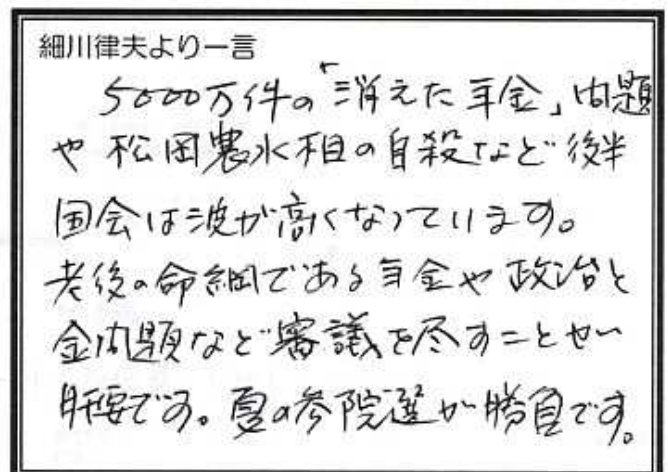 細川律夫より一言
5000万件の「消えた年金」問題
や松岡農水相の自殺など後半
国会は波が高くなっています。
老後の命綱である年金や政治と
金問題など審議を尽すことが
肝要です。夏の参院選が勝負です。